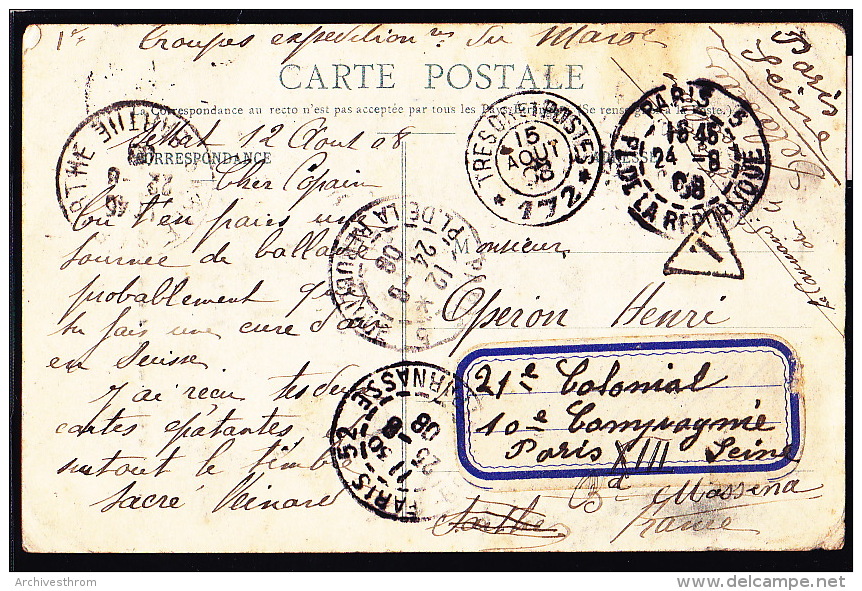 Troupes expeditionres du Maroc
Paris
Seine
CARTE POSTALE
La Correspondance au recto n'est pas acceptée par tous les Pays étrangers (Se renseigner à la poste.
12 Aout 08
CORRESPONDANCE
ADRESSE
Cher Copain
Tu t'en paies une
tournée de ballade
probablement que
tu fais une cure d'air
en Suisse
J'ai reçu tes deux
cartes épatantes
surtout le timbre
Sacré Veinard
TRESOR ET POSTES
15
AOUT
08
* 172 *
PARIS - 5
16 45
24 - 8
08
PL. DE LA REPUBLIQUE
T
PL. DE LA REPUBLIQUE
12 * 15
24 - 8
08
PARIS - 52
11 30
23 - 8
08
Monsieur
Operon Henri
21e Colonial
10e Compagnie
Paris XIII Seine
Bd Massena
Sarthe
France
Archivesthrom
delcampe.net